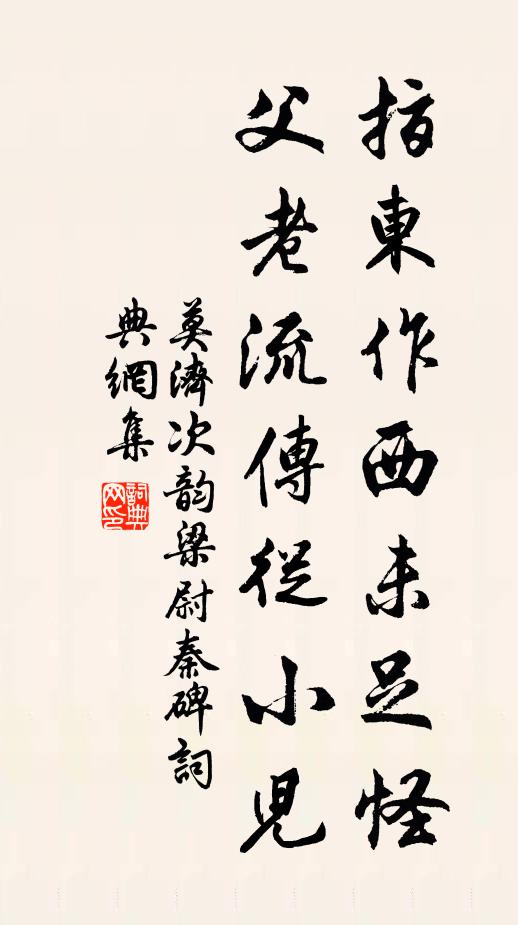 指東作西未足怪
父老流傳從小兒
莫濟次韵梁尉秦碑詞
典網集
詞典
网印